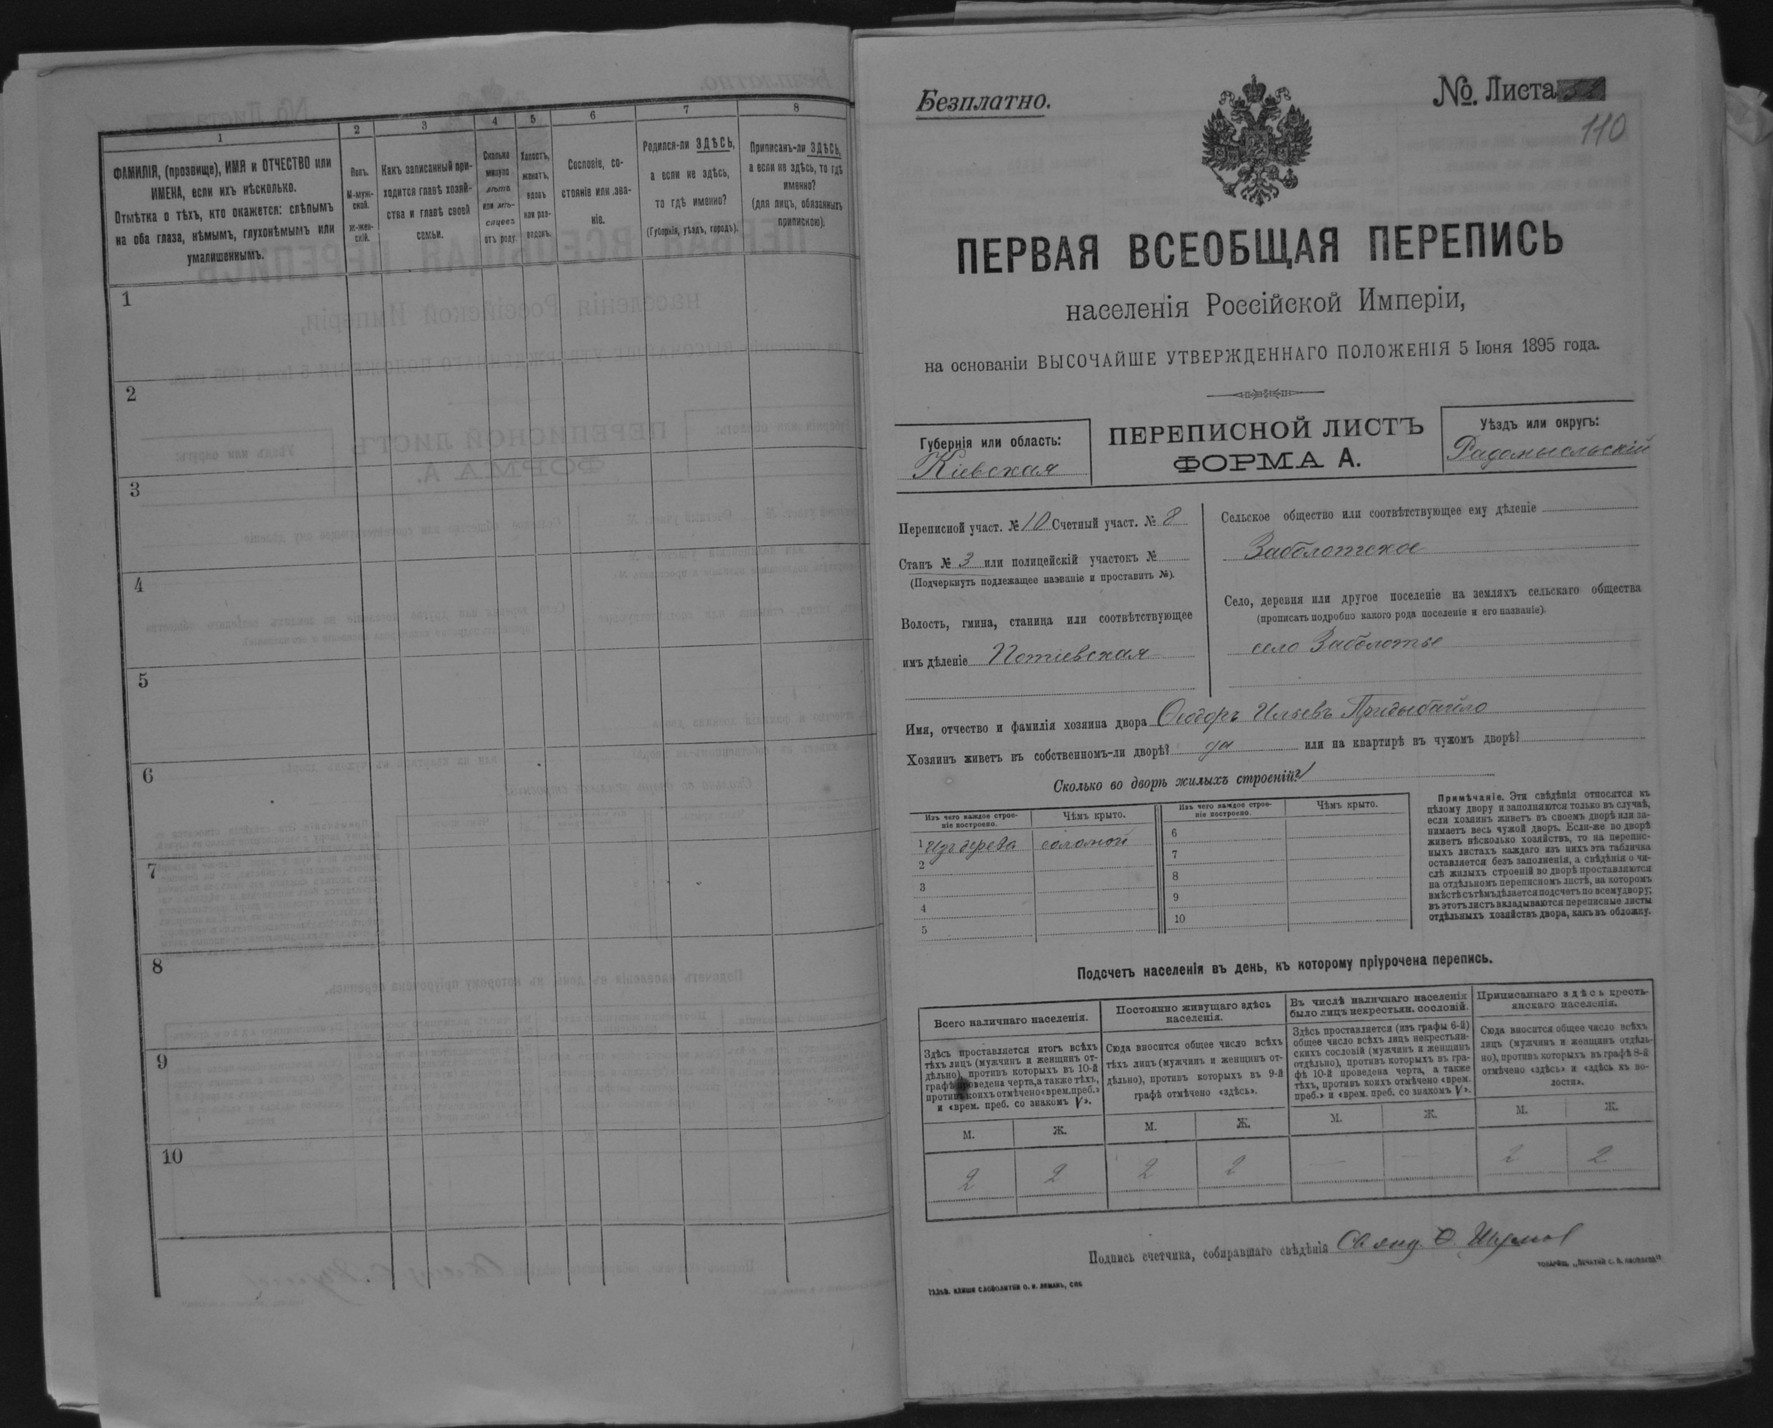 1 2 3 4 5 6 7 8
ФАМИЛІЯ, (прозвище), ИМЯ и ОТЧЕСТВО или
ИМЕНА, если ихъ нѣсколько.
Отмѣтка о тѣхъ, кто окажется: слѣпымъ
на оба глаза, нѣмымъ, глухонѣмымъ или
умалишеннымъ.
Полъ.
М-муж-
ской.
ж-жен-
скій.
Какъ записанный при-
ходится главѣ хозяй-
ства и главѣ своей
семьи.
Сколько
минуло
лѣтъ
или мѣ-
сяцевъ
отъ роду.
Холостъ,
женатъ,
вдовъ
или раз-
веденъ.
Сословіе, со-
стояніе или зва-
ніе.
Родился-ли ЗДѢСЬ,
а если не здѣсь,
то гдѣ именно?
(Губернія, уѣздъ, городъ).
Приписанъ-ли ЗДѢСЬ,
а если не здѣсь, то гдѣ
именно?
(для лицъ, обязанныхъ
припискою).
1
2
3
4
5
6
7
8
9
10
Безплатно.
№. Листа
110
ПЕРВАЯ ВСЕОБЩАЯ ПЕРЕПИСЬ
населенія Россійской Имперіи,
на основаніи ВЫСОЧАЙШЕ УТВЕРЖДЕННАГО ПОЛОЖЕНІЯ 5 Іюня 1895 года.
Губернія или область:
Кіевская
ПЕРЕПИСНОЙ ЛИСТЪ
ФОРМА А.
Уѣздъ или округъ:
Радомысльскій
Переписной участ. № 10 Счетный участ. № 8
Станъ № 3 или полицейскій участокъ №
(Подчеркнуть подлежащее названіе и проставить №).
Волость, гмина, станица или соотвѣтствующее
имъ дѣленіе Потіевская
Сельское общество или соотвѣтствующее ему дѣленіе
Заболотское
Село, деревня или другое поселеніе на земляхъ сельскаго общества
(прописать подробно какого рода поселеніе и его названіе).
село Заболотье
Имя, отчество и фамилія хозяина двора Ѳеодоръ Ильевъ
Хозяинъ живетъ въ собственномъ-ли дворѣ? да или на квартирѣ въ чужомъ дворѣ?
Сколько во дворѣ жилыхъ строеній? 1
Изъ чего каждое строе-
ніе построено.
Чѣмъ крыто.
Изъ чего каждое строе-
ніе построено.
Чѣмъ крыто.
1 Изъ дерева соломой
2
3
4
5
6
7
8
9
10
Примѣчаніе. Эти свѣдѣнія относятся къ
цѣлому двору и заполняются только въ случаѣ,
если хозяинъ живетъ въ своемъ дворѣ или за-
нимаетъ весь чужой дворъ. Если-же во дворѣ
живетъ нѣсколько хозяйствъ, то на перепис-
ныхъ листахъ каждаго изъ нихъ эта табличка
оставляется безъ заполненія, а свѣдѣнія о чи-
слѣ жилыхъ строеній во дворѣ проставляются
на отдѣльномъ переписномъ листѣ, на которомъ
вмѣстѣ съ тѣмъ дѣлается подсчетъ по всему двору;
въ этотъ листъ вкладываются переписные листы
отдѣльныхъ хозяйствъ двора, какъ въ обложку.
Подсчетъ населенія въ день, къ которому пріурочена перепись.
Всего наличнаго населенія.
Постоянно живущаго здѣсь
населенія.
Въ числѣ наличнаго населенія
было лицъ некрестьян. сословій.
Приписаннаго здѣсь кресть-
янскаго населенія.
Здѣсь проставляется итогъ всѣхъ
тѣхъ лицъ (мужчинъ и женщинъ от-
дѣльно), противъ которыхъ въ 10-й
графѣ проведена черта, а также тѣхъ,
противъ коихъ отмѣчено «врем. преб.»
и «врем. преб. со знакомъ V».
Сюда вносится общее число всѣхъ
тѣхъ лицъ (мужчинъ и женщинъ от-
дѣльно), противъ которыхъ въ 9-й
графѣ отмѣчено «здѣсь».
Здѣсь проставляется (изъ графы 6-й)
общее число всѣхъ лицъ некрестьян-
скихъ сословій (мужчинъ и женщинъ
отдѣльно), противъ которыхъ въ гра-
фѣ 10-й проведена черта, а также
тѣхъ, противъ коихъ отмѣчено «врем.
преб.» и «врем. преб. со знакомъ V».
Сюда вносится общее число всѣхъ
лицъ (мужчинъ и женщинъ отдѣль-
но), противъ которыхъ въ графѣ 8-й
отмѣчено «здѣсь» и «здѣсь къ во-
лости».
М. Ж. М. Ж. М. Ж. М. Ж.
2 2 2 2 — — 2 2
Подпись счетчика, собиравшаго свѣдѣнія
ГАЛЬВ. КЛИШЕ СЛОВОЛИТНИ О. И. ЛЕМАНЪ, СПБ.